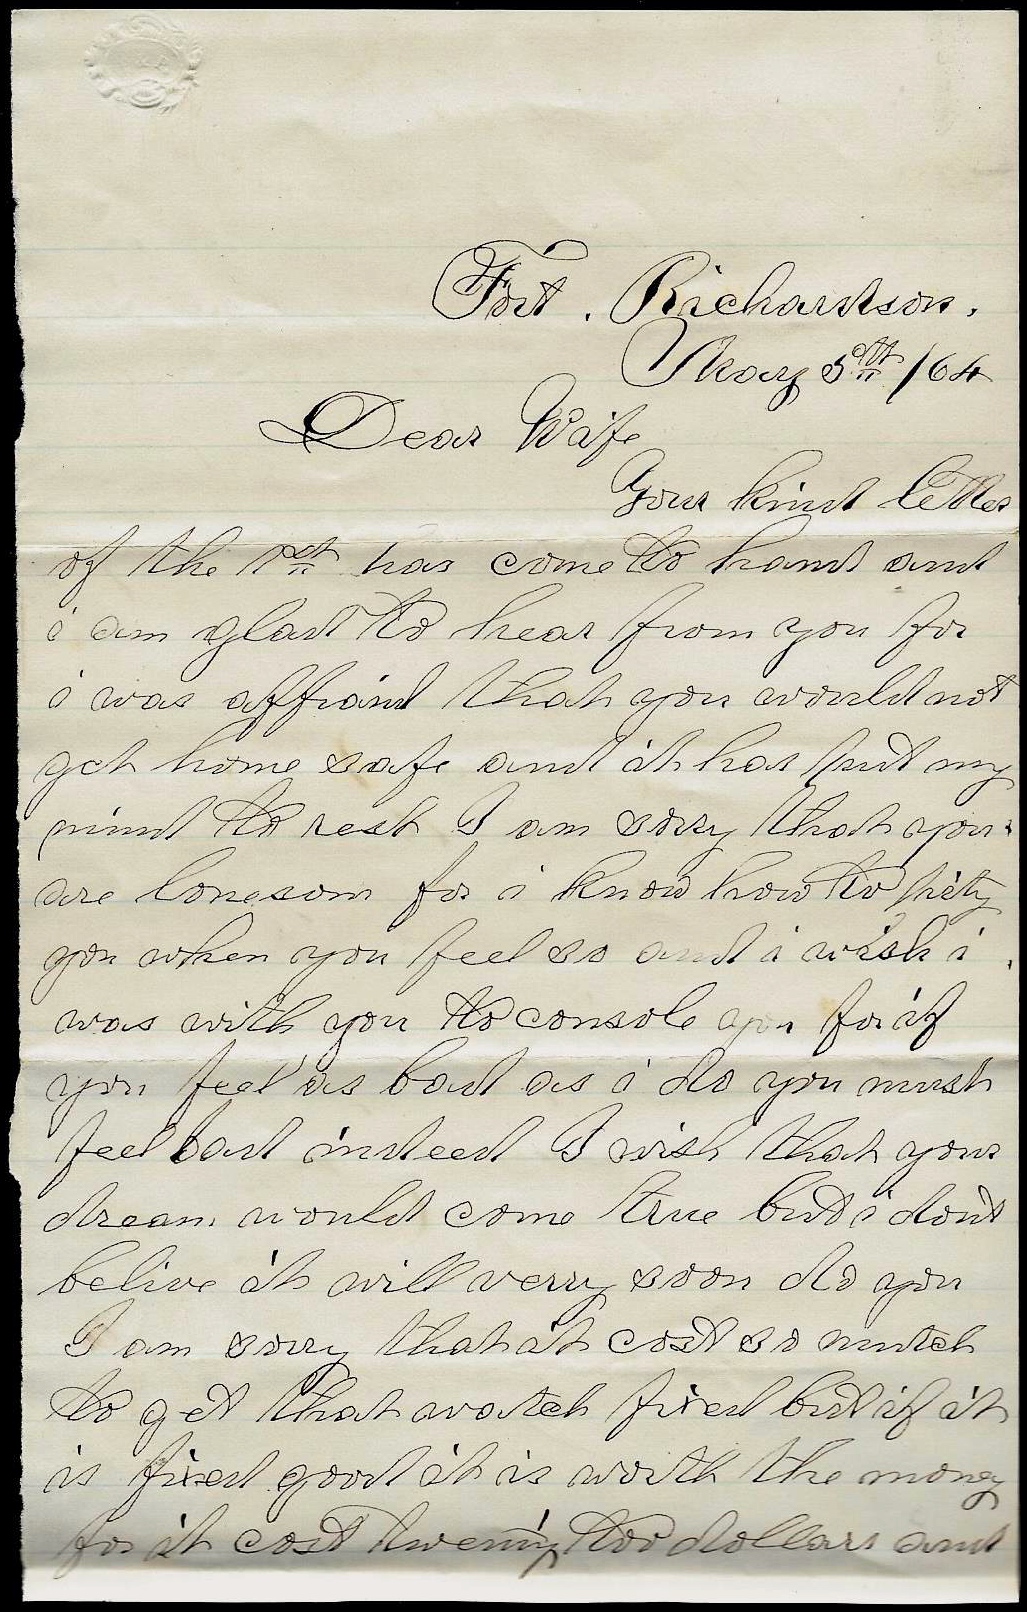 Fort. Richardson.
May 5th /64
Dear Wife
Your kind letter
of the 1st has come to hand and
i am glad to hear from you for
i was affraid that you would not
get home safe and it has put my
mind to rest I am sorry that you
are lonesom for i know how to pitty
you when you feel so and i wish i
was with you to console you for if
you feel as bad as i do you must
feel bad indeed I wish that your
dream would come true but i dont
belive it will verry soon do you
I am sorry that it cost so mutch
to get that watch fixed but if it
is fixed good it is worth the money
for it cost twenty too dollars and